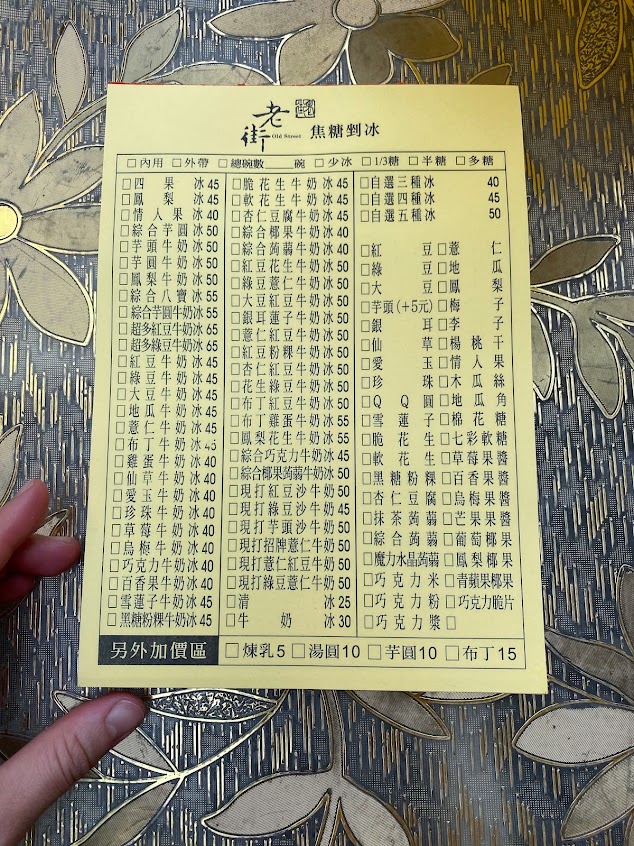 老街 Old Street 焦糖剉冰
□內用 □外帶 □總碗數 碗 □少冰 □1/3糖 □半糖 □多糖
□四果冰45
□鳳梨冰45
□情人果冰40
□綜合芋圓冰50
□芋頭牛奶冰50
□芋圓牛奶冰50
□鳳梨牛奶冰50
□綜合八寶冰55
□綜合芋圓牛奶冰55
□超多紅豆牛奶冰65
□超多綠豆牛奶冰65
□紅豆牛奶冰45
□綠豆牛奶冰45
□大豆牛奶冰45
□地瓜牛奶冰45
□薏仁牛奶冰45
□布丁牛奶冰45
□雞蛋牛奶冰40
□仙草牛奶冰40
□愛玉牛奶冰40
□珍珠牛奶冰40
□草莓牛奶冰40
□烏梅牛奶冰40
□巧克力牛奶冰40
□百香果牛奶冰40
□雪蓮子牛奶冰45
□黑糖粉粿牛奶冰45
□脆花生牛奶冰45
□軟花生牛奶冰45
□杏仁豆腐牛奶冰45
□綜合椰果牛奶冰40
□綜合蒟蒻牛奶冰40
□紅豆花生牛奶冰50
□綠豆薏仁牛奶冰50
□大豆紅豆牛奶冰50
□銀耳蓮子牛奶冰50
□薏仁紅豆牛奶冰50
□紅豆粉粿牛奶冰50
□杏仁紅豆牛奶冰50
□花生綠豆牛奶冰50
□布丁紅豆牛奶冰50
□布丁雞蛋牛奶冰55
□鳳梨花生牛奶冰55
□綜合巧克力牛奶冰45
□綜合椰果蒟蒻牛奶冰50
□現打紅豆沙牛奶50
□現打綠豆沙牛奶45
□現打芋頭沙牛奶50
□現打招牌薏仁牛奶50
□現打薏仁紅豆牛奶50
□現打綠豆薏仁牛奶50
□清冰25
□牛奶冰30
□自選三種冰 40
□自選四種冰 45
□自選五種冰 50
□紅豆 □薏仁
□綠豆 □地瓜
□大豆 □鳳梨
□芋頭(+5元) □梅子
□銀耳 □李子
□仙草 □楊桃干
□愛玉 □情人果
□珍珠 □木瓜絲
□QQ圓 □地瓜角
□雪蓮子 □棉花糖
□脆花生 □七彩軟糖
□軟花生 □草莓果醬
□黑糖粉粿 □百香果醬
□杏仁豆腐 □烏梅果醬
□抹茶蒟蒻 □芒果果醬
□綜合蒟蒻 □葡萄椰果
□魔力水晶蒟蒻 □鳳梨椰果
□巧克力米 □青蘋果椰果
□巧克力粉 □巧克力脆片
□巧克力漿 □
另外加價區 □煉乳5 □湯圓10 □芋圓10 □布丁15